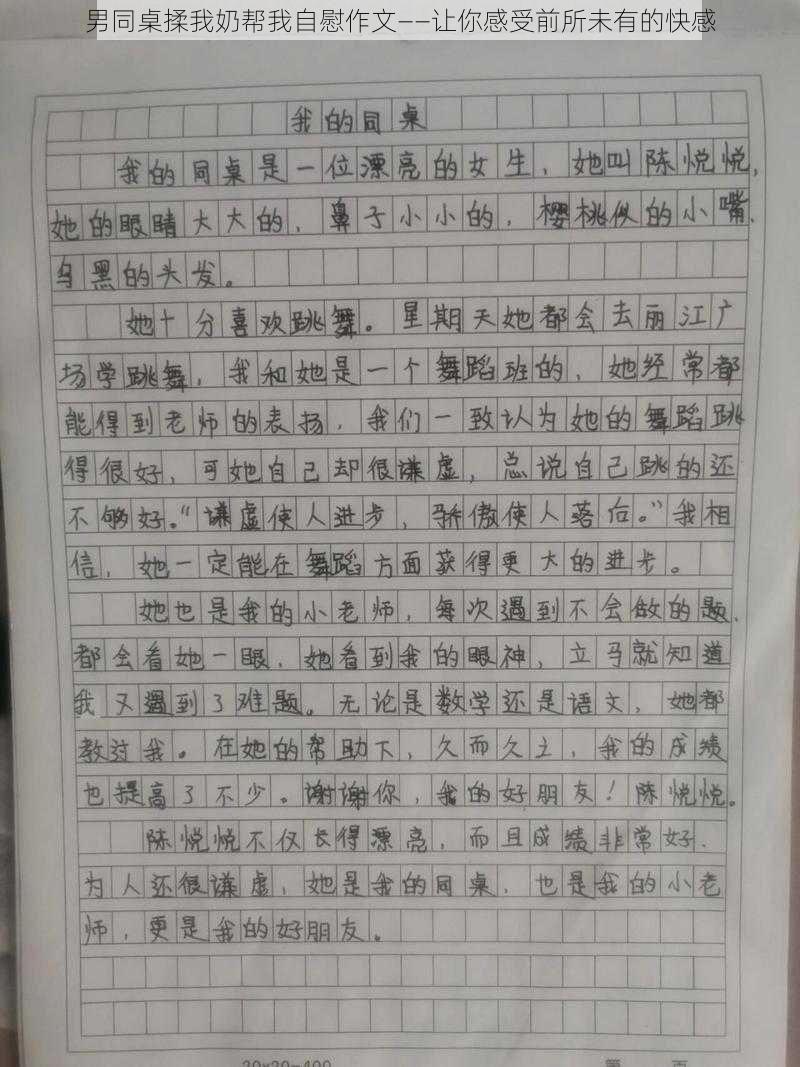 我的同桌
我的同桌是一位漂亮的女生，她叫陈悦悦，
她的眼睛大大的，鼻子小小的，樱桃似的小嘴，
乌黑的头发。
她十分喜欢跳舞。星期天她都会去丽江广
场学跳舞，我和她是一个舞蹈班的，她经常都
能得到老师的表扬，我们一致认为她的舞蹈跳
得很好，可她自己却很谦虚，总说自己跳的还
不够好。“谦虚使人进步，骄傲使人落后。”我相
信，她一定能在舞蹈方面获得更大的进步。
她也是我的小老师，每次遇到不会做的题，
都会看她一眼，她看到我的眼神，立马就知道
我又遇到了难题。无论是数学还是语文，她都
教过我。在她的帮助下，久而久之，我的成绩
也提高了不少。谢谢你，我的好朋友！陈悦悦。
陈悦悦不仅长得漂亮，而且成绩非常好，
为人还很谦虚，她是我的同桌，也是我的小老
师，更是我的好朋友。
20×20=400